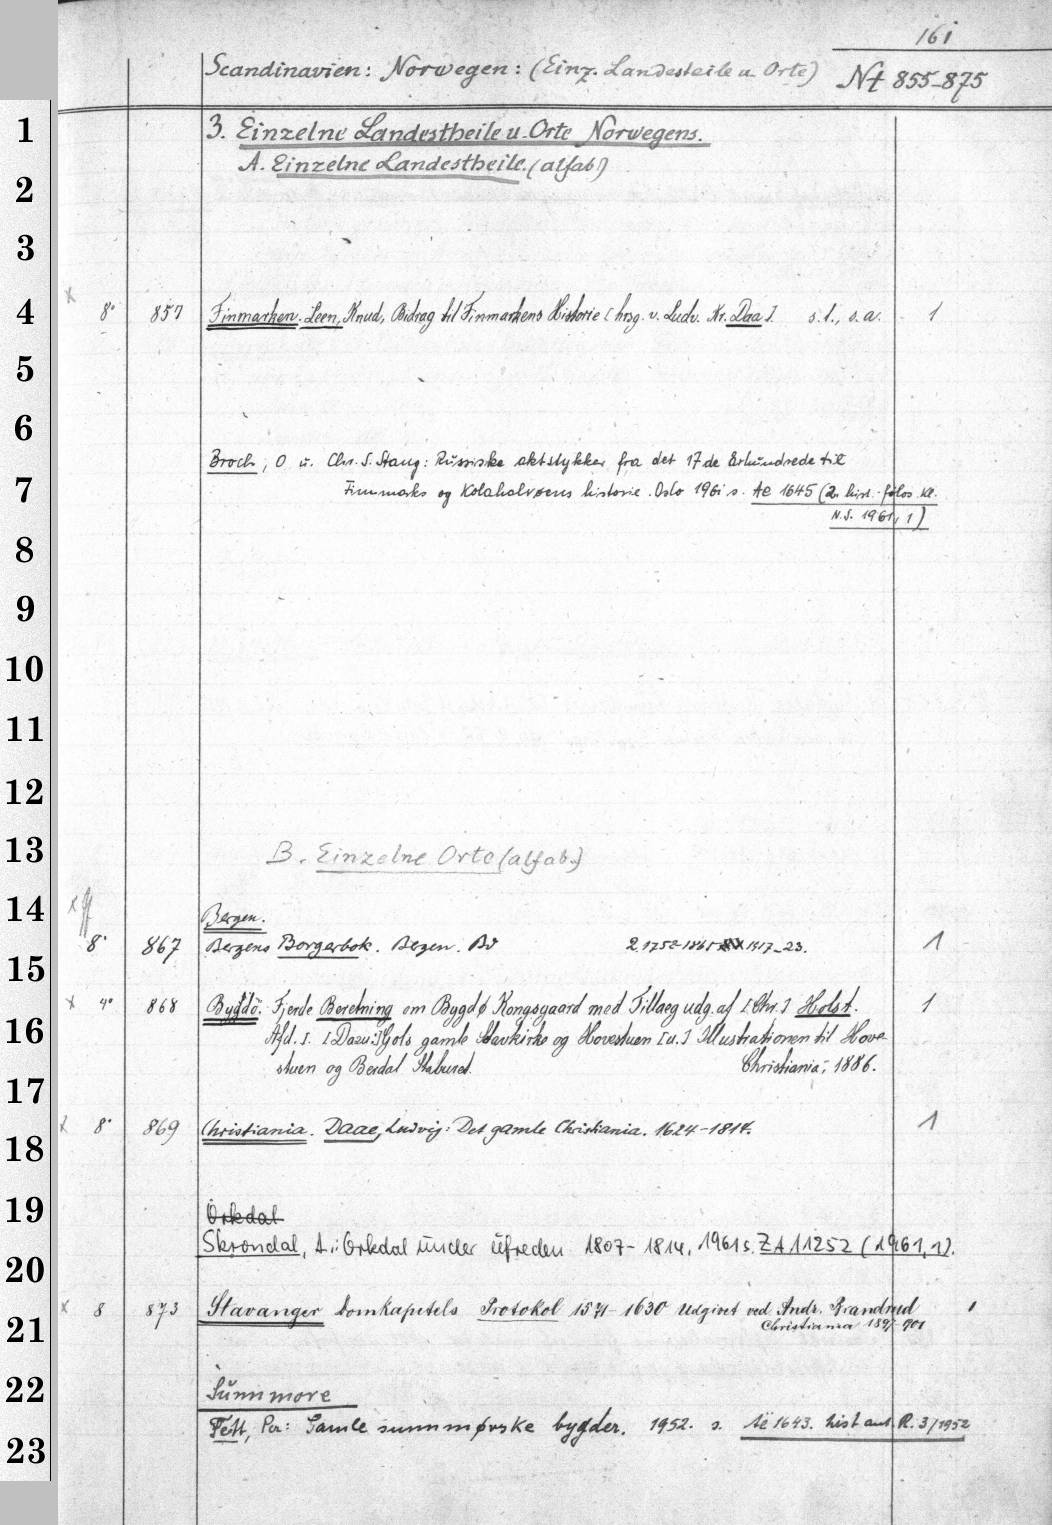 161
Scandinavien: Norwegen: (Einz. Landesteile u. Orte) Nt 855-875
1 3. Einzelne Landestheile u. Orte Norwegens.
2 A. Einzelne Landestheile. (alfab.)
3
4 x 8° 857 Finmarken. Leen, Knud, Bidrag til Finmarkens Historie [hrsg. v. Ludv. Kr. Daa]. s. l., s. a. 1
5
6
Broch, O u. Chr. S. Stang: Russiske aktstykker fra det 17de århundrede til
7 Finnmarks og Kolahalvøens historie. Oslo 1961 s. Ae 1645 (2. hist.-filos. Kl.
N.S. 1961, 1)
8
9
10
11
12
13 B. Einzelne Orte (alfab.)
14 x
Bergen.
8° 867 Bergens Borgerbok. Bergen. Bd 2. 1752-1865 1917-23. 1
15
x 4° 868 Bygdö. Fjerde Beretning om Bygdø Kongsgaard med Tillaeg udg. af [Chr.] Holst. 1
16 Afd. I. [Dazu:] Gols gamle Stavkirke og Hovestuen [u.] Illustrationen til Hove-
stuen og Berdal Staburet. Christiania, 1886.
17
x 8° 869 Christiania. Daae, Ludvig: Det gamle Christiania. 1624-1814. 1
18
19 Orkdal
Skrondal, A.: Orkdal under ufreden 1807-1814, 1961 s. ZA 11252 (1961, 1).
20
x 8 873 Stavanger Domkapitels Protokol 1571-1630 Udgivet ved Andr. Brandrud 1
21 Christiania 1897-901
22 Sunnmore
Fett, Per: Gamle sunnmørske bygder. 1952. s. Ae 1643. hist ant. R. 3/1952
23